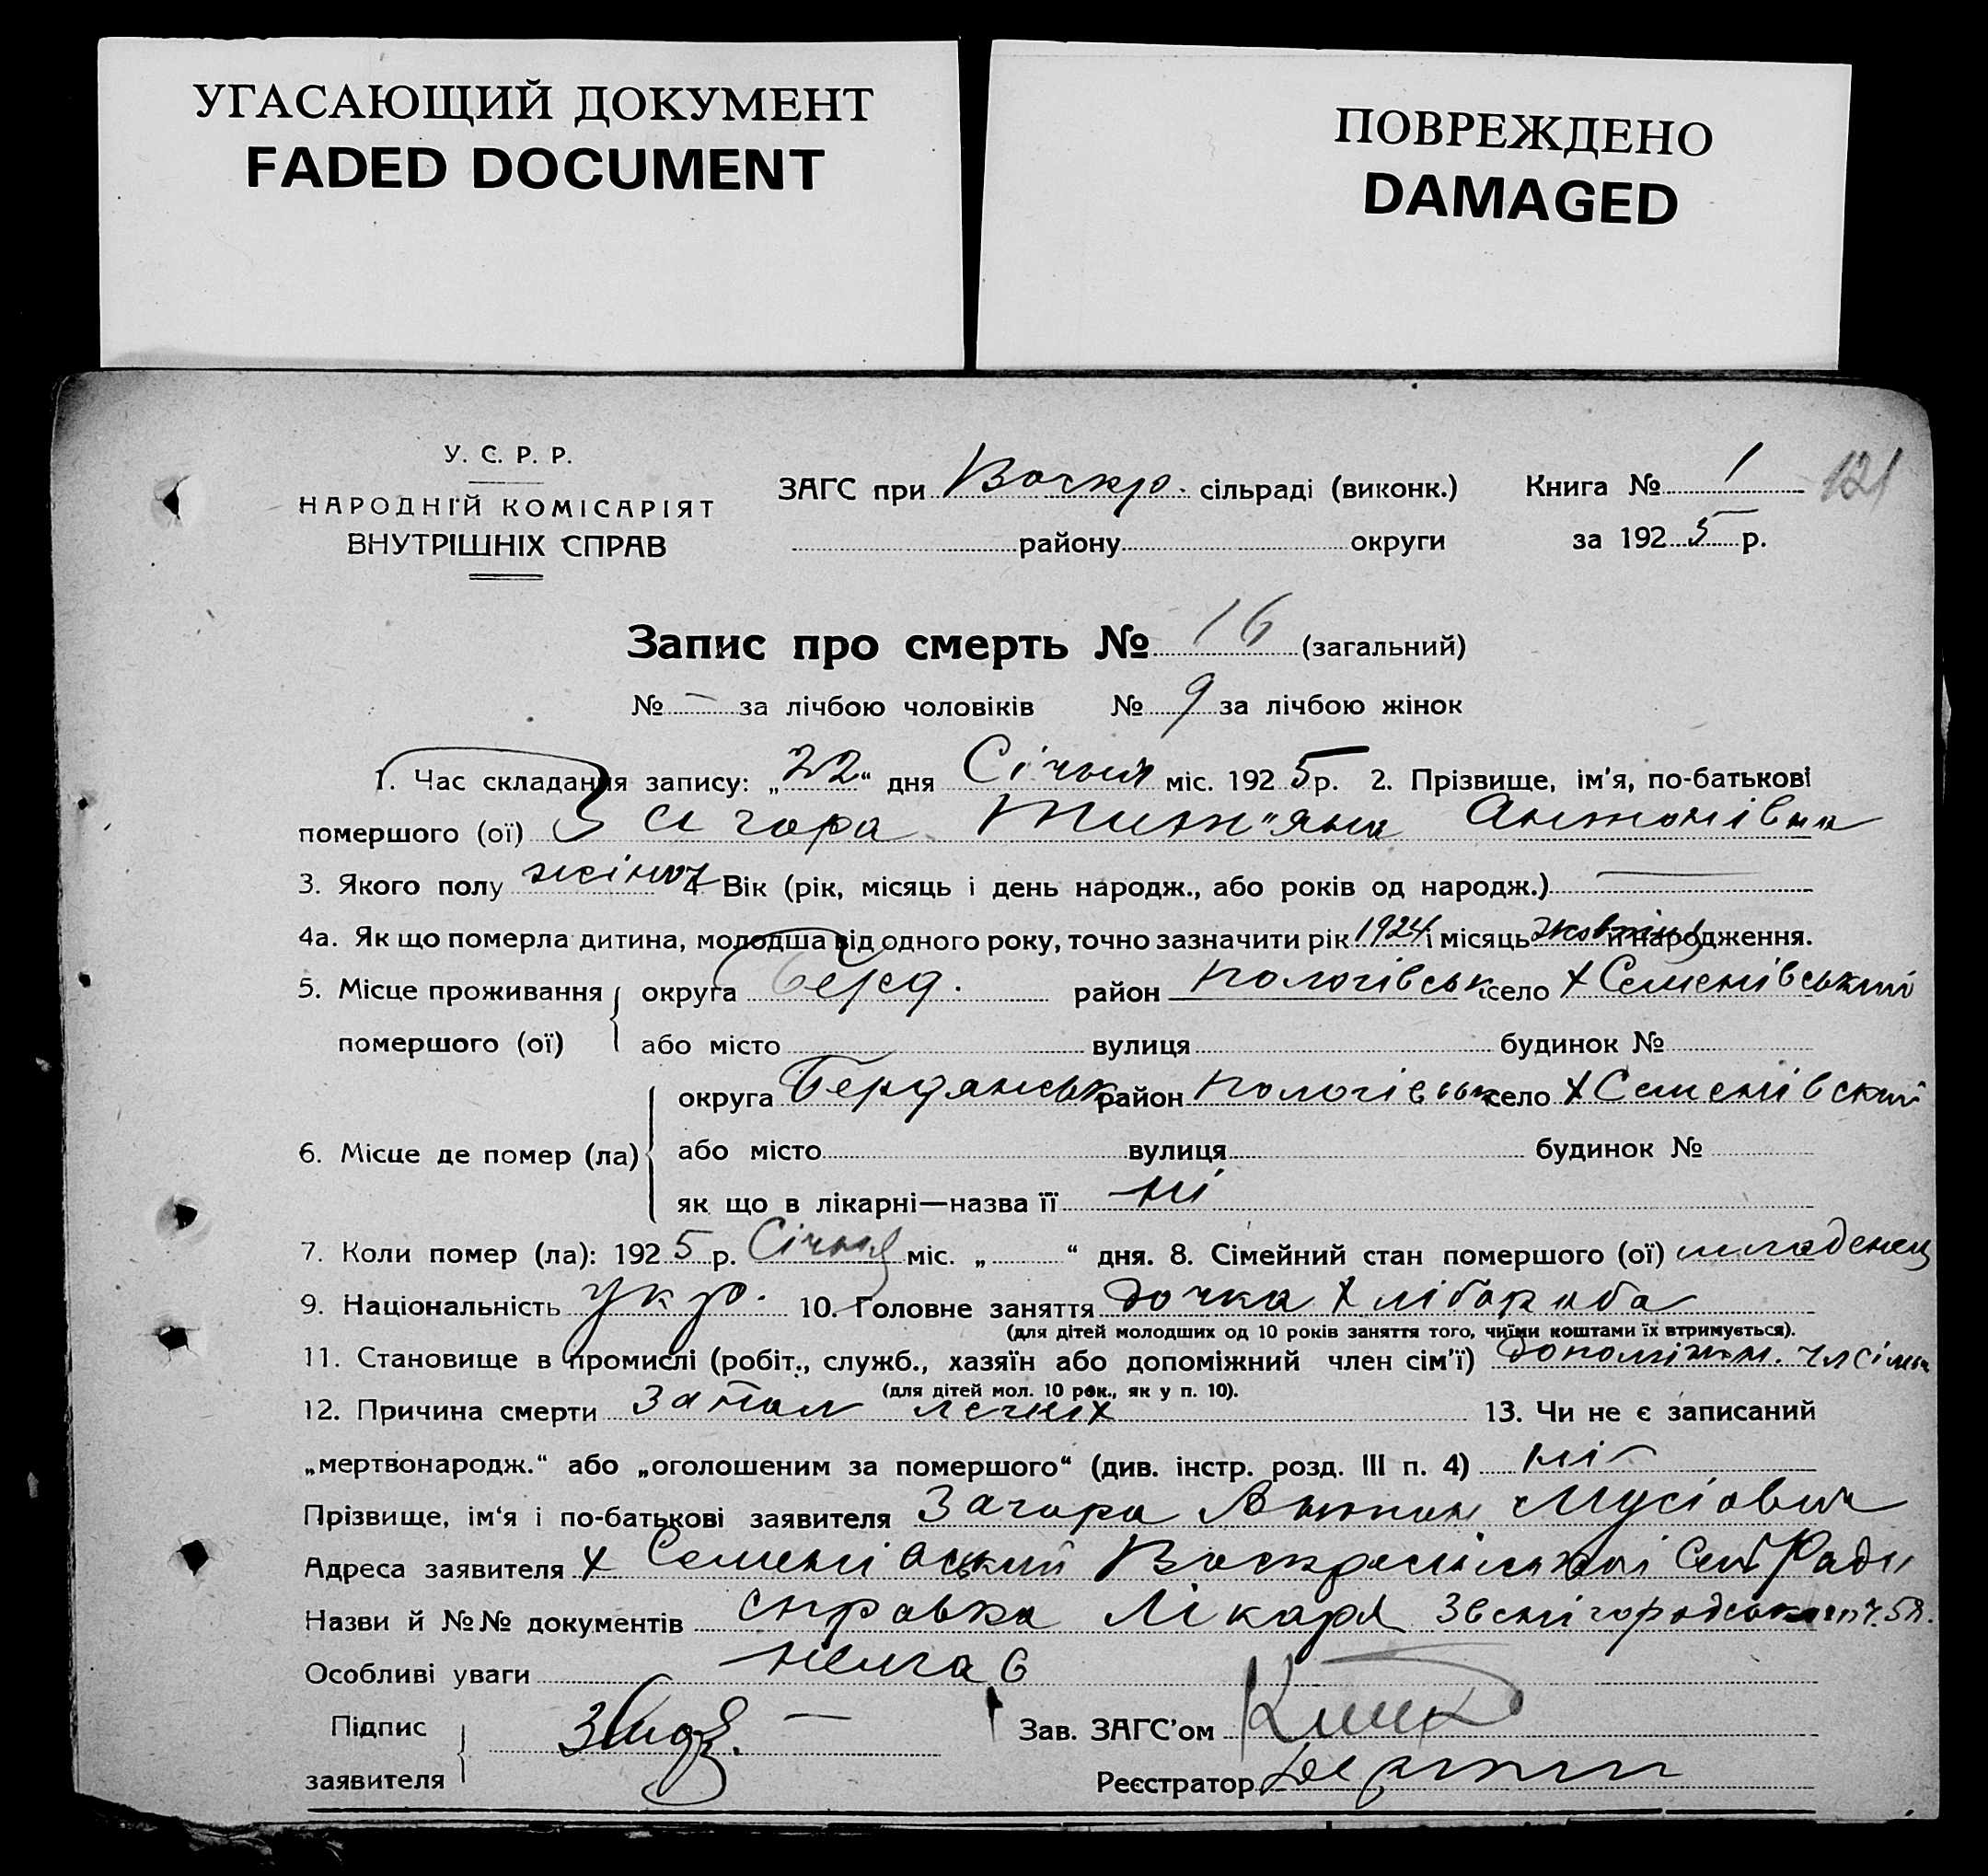 УГАСАЮЩИЙ ДОКУМЕНТ
FADED DOCUMENT
ПОВРЕЖДЕНО
DAMAGED
У. С. Р. Р.
НАРОДНІЙ КОМІСАРІЯТ
ВНУТРІШНІХ СПРАВ
ЗАГС при Воскр. сільраді (виконк.) Книга № 1 121
району округи за 1925 р.
Запис про смерть № 16 (загальний)
№ — за лічбою чоловіків № 9 за лічбою жінок
1. Час складання запису: „22“ дня Січня міс. 1925 р. 2. Прізвище, ім'я, по-батькові
помершого (ої) Загора Тит"яна Антонівна
3. Якого полу жіноч 4. Вік (рік, місяць і день народж., або років од народж.) —
4а. Як що померла дитина, молодша від одного року, точно зазначити рік 1924 і місяць жовтня й народження.
5. Місце проживання помершого (ої) округа Берд. район Пологівськ село х Семенівський
або місто вулиця будинок №
6. Місце де помер (ла) округа Бердянськ район Пологівськ село х Семенівский
або місто вулиця будинок №
як що в лікарні—назва її ні
7. Коли помер (ла): 1925 р. Січня міс. „ “ дня. 8. Сімейний стан помершого (ої) младенец
9. Національність укр. 10. Головне заняття дочка хлібороба
(для дітей молодших од 10 років заняття того, чиїми коштами їх втримується).
11. Становище в промислі (робіт., служб., хазяїн або допоміжний член сім'ї) допоміжн. чл сімьи
(для дітей мол. 10 рок., як у п. 10).
12. Причина смерти Запал легких 13. Чи не є записаний
„мертвонародж.“ або „оголошеним за помершого“ (див. інстр. розд. III п. 4) ні
Прізвище, ім‘я і по-батькові заявителя Загора Антон Мусіович
Адреса заявителя х Семенівський Воскресінської Сел Ради
Назви й №№ документів справка Лікаря Звенігородськ
Особливі уваги нема
Підпис заявителя
Зав. ЗАГС'ом
Реєстратор